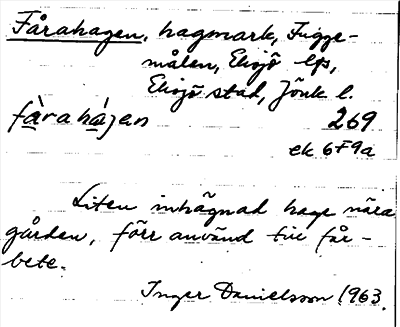 Fårahagen, hagmark, Figge-
målen, Eksjö lfs,
Eksjö stad, Jönk l.
fàrahájen 269
ek 6F9a
Liten inhägnad hage nära
gården, förr använd till får-
bete.
Inger Danielsson 1963.